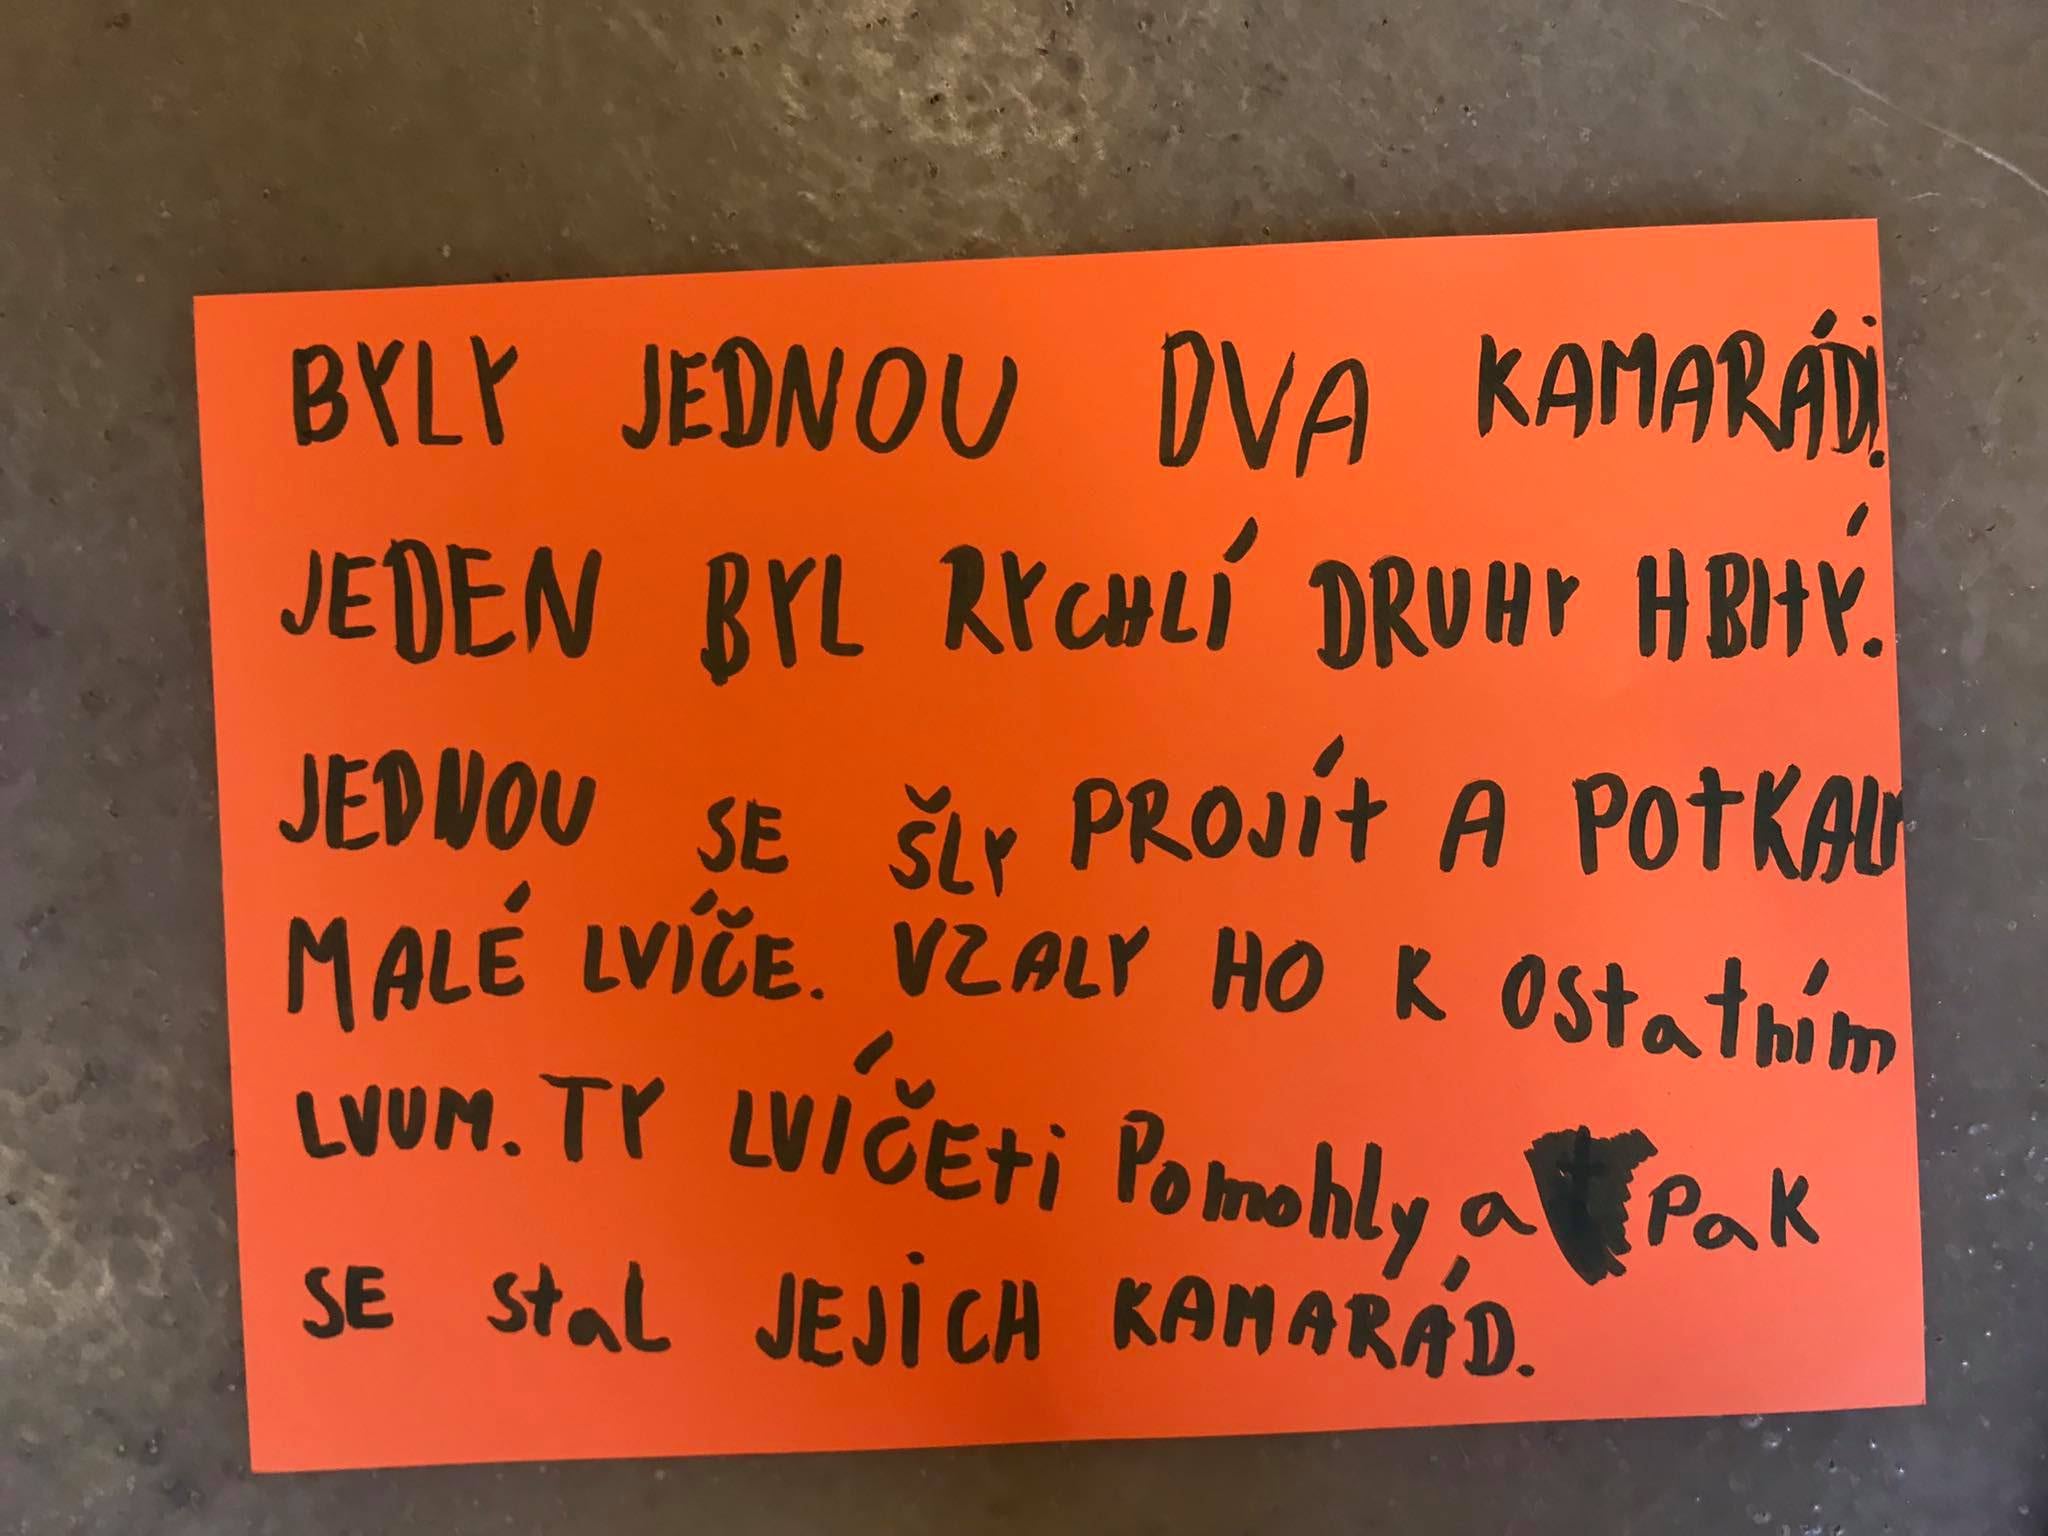 BYLY JEDNOU DVA KAMARÁDi.
JEDEN BYL RYCHLÍ DRUHY HBItÝ.
JEDNOU SE ŠLY PROJÍt A POtKALY
MALÉ LVÍČE. VZALY HO K OStatním
LVUM. TY LVÍČEti Pomohly a Pak
SE Stal JEJiCH KAMARÁD.